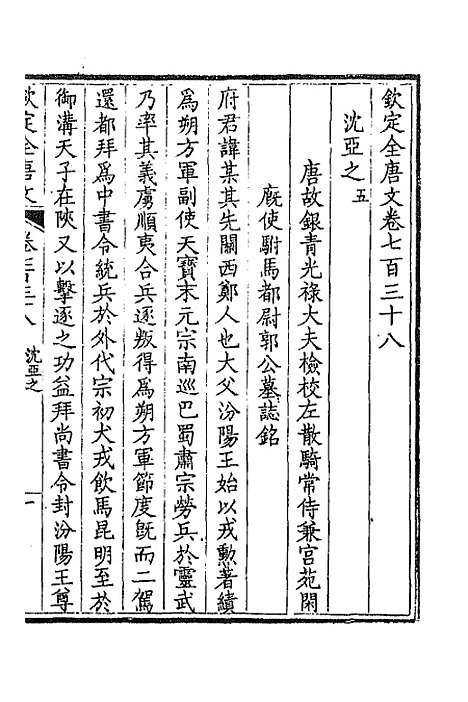 欽定全唐文卷七百三十八
沈亞之五
唐故銀青光祿大夫檢校左散騎常侍兼宫苑閑
廐使駙馬都尉郭公墓誌銘
府君諱某其先關西鄭人也大父汾陽王始以戎勲著績
爲朔方軍副使天寶末元宗南巡巴蜀肅宗勞兵於靈武
乃率其義虜順夷合兵逐叛得爲朔方軍節度既而二駕
還都拜爲中書令統兵於外代宗初犬戎飲馬昆明至於
御溝天子在陝又以擊逐之功益拜尚書令封汾陽王尊
欽定全唐文 卷七百三十八 沈亞之 一